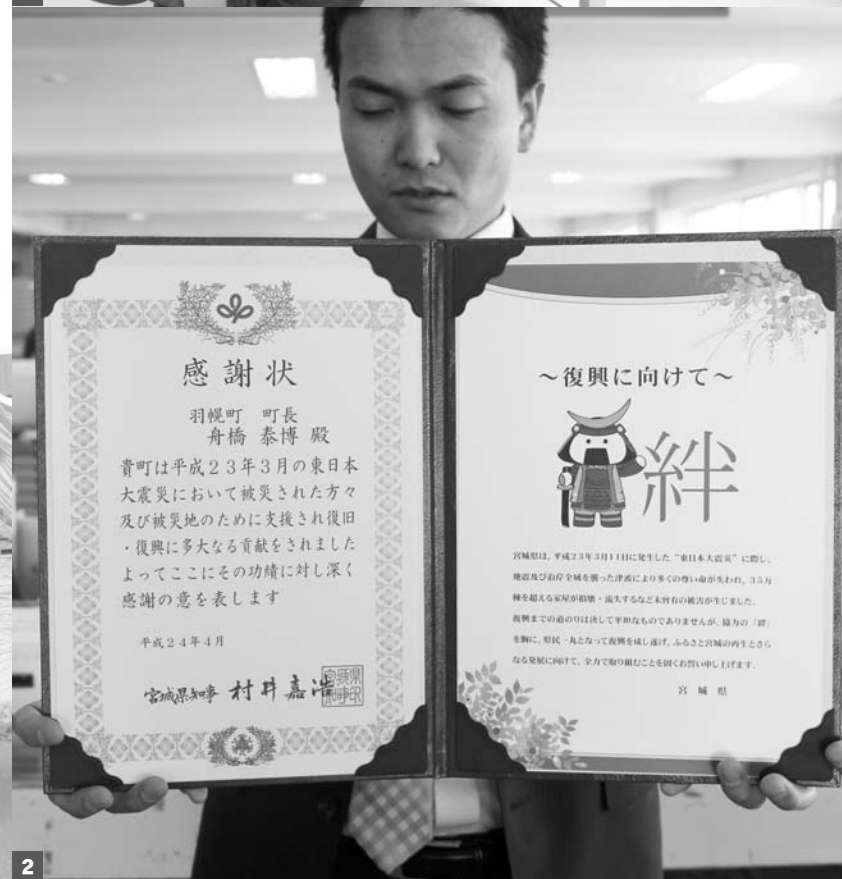 感謝状
羽幌町 町長
舟橋 泰博 殿
貴町は平成23年3月の東日本
大震災において被災された方々
及び被災地のために支援され復旧
・復興に多大なる貢献をされました
よってここにその功績に対し深く
感謝の意を表します
平成24年4月
宮城県知事 村井嘉浩
～復興に向けて～
絆
宮城県は、平成23年3月11日に発生した“東日本大震災”に際し、
地震及び沿岸全域を襲った津波により多くの尊い命が失われ、35万
棟を超える家屋が損壊・流失するなど未曾有の被害が生じました。
復興までの道のりは決して平坦なものでありませんが、協力の「絆」
を胸に、県民一丸となって復興を成し遂げ、ふるさと宮城の再生とさら
なる発展に向けて、全力で取り組むことを固くお誓い申し上げます。
宮城県
2